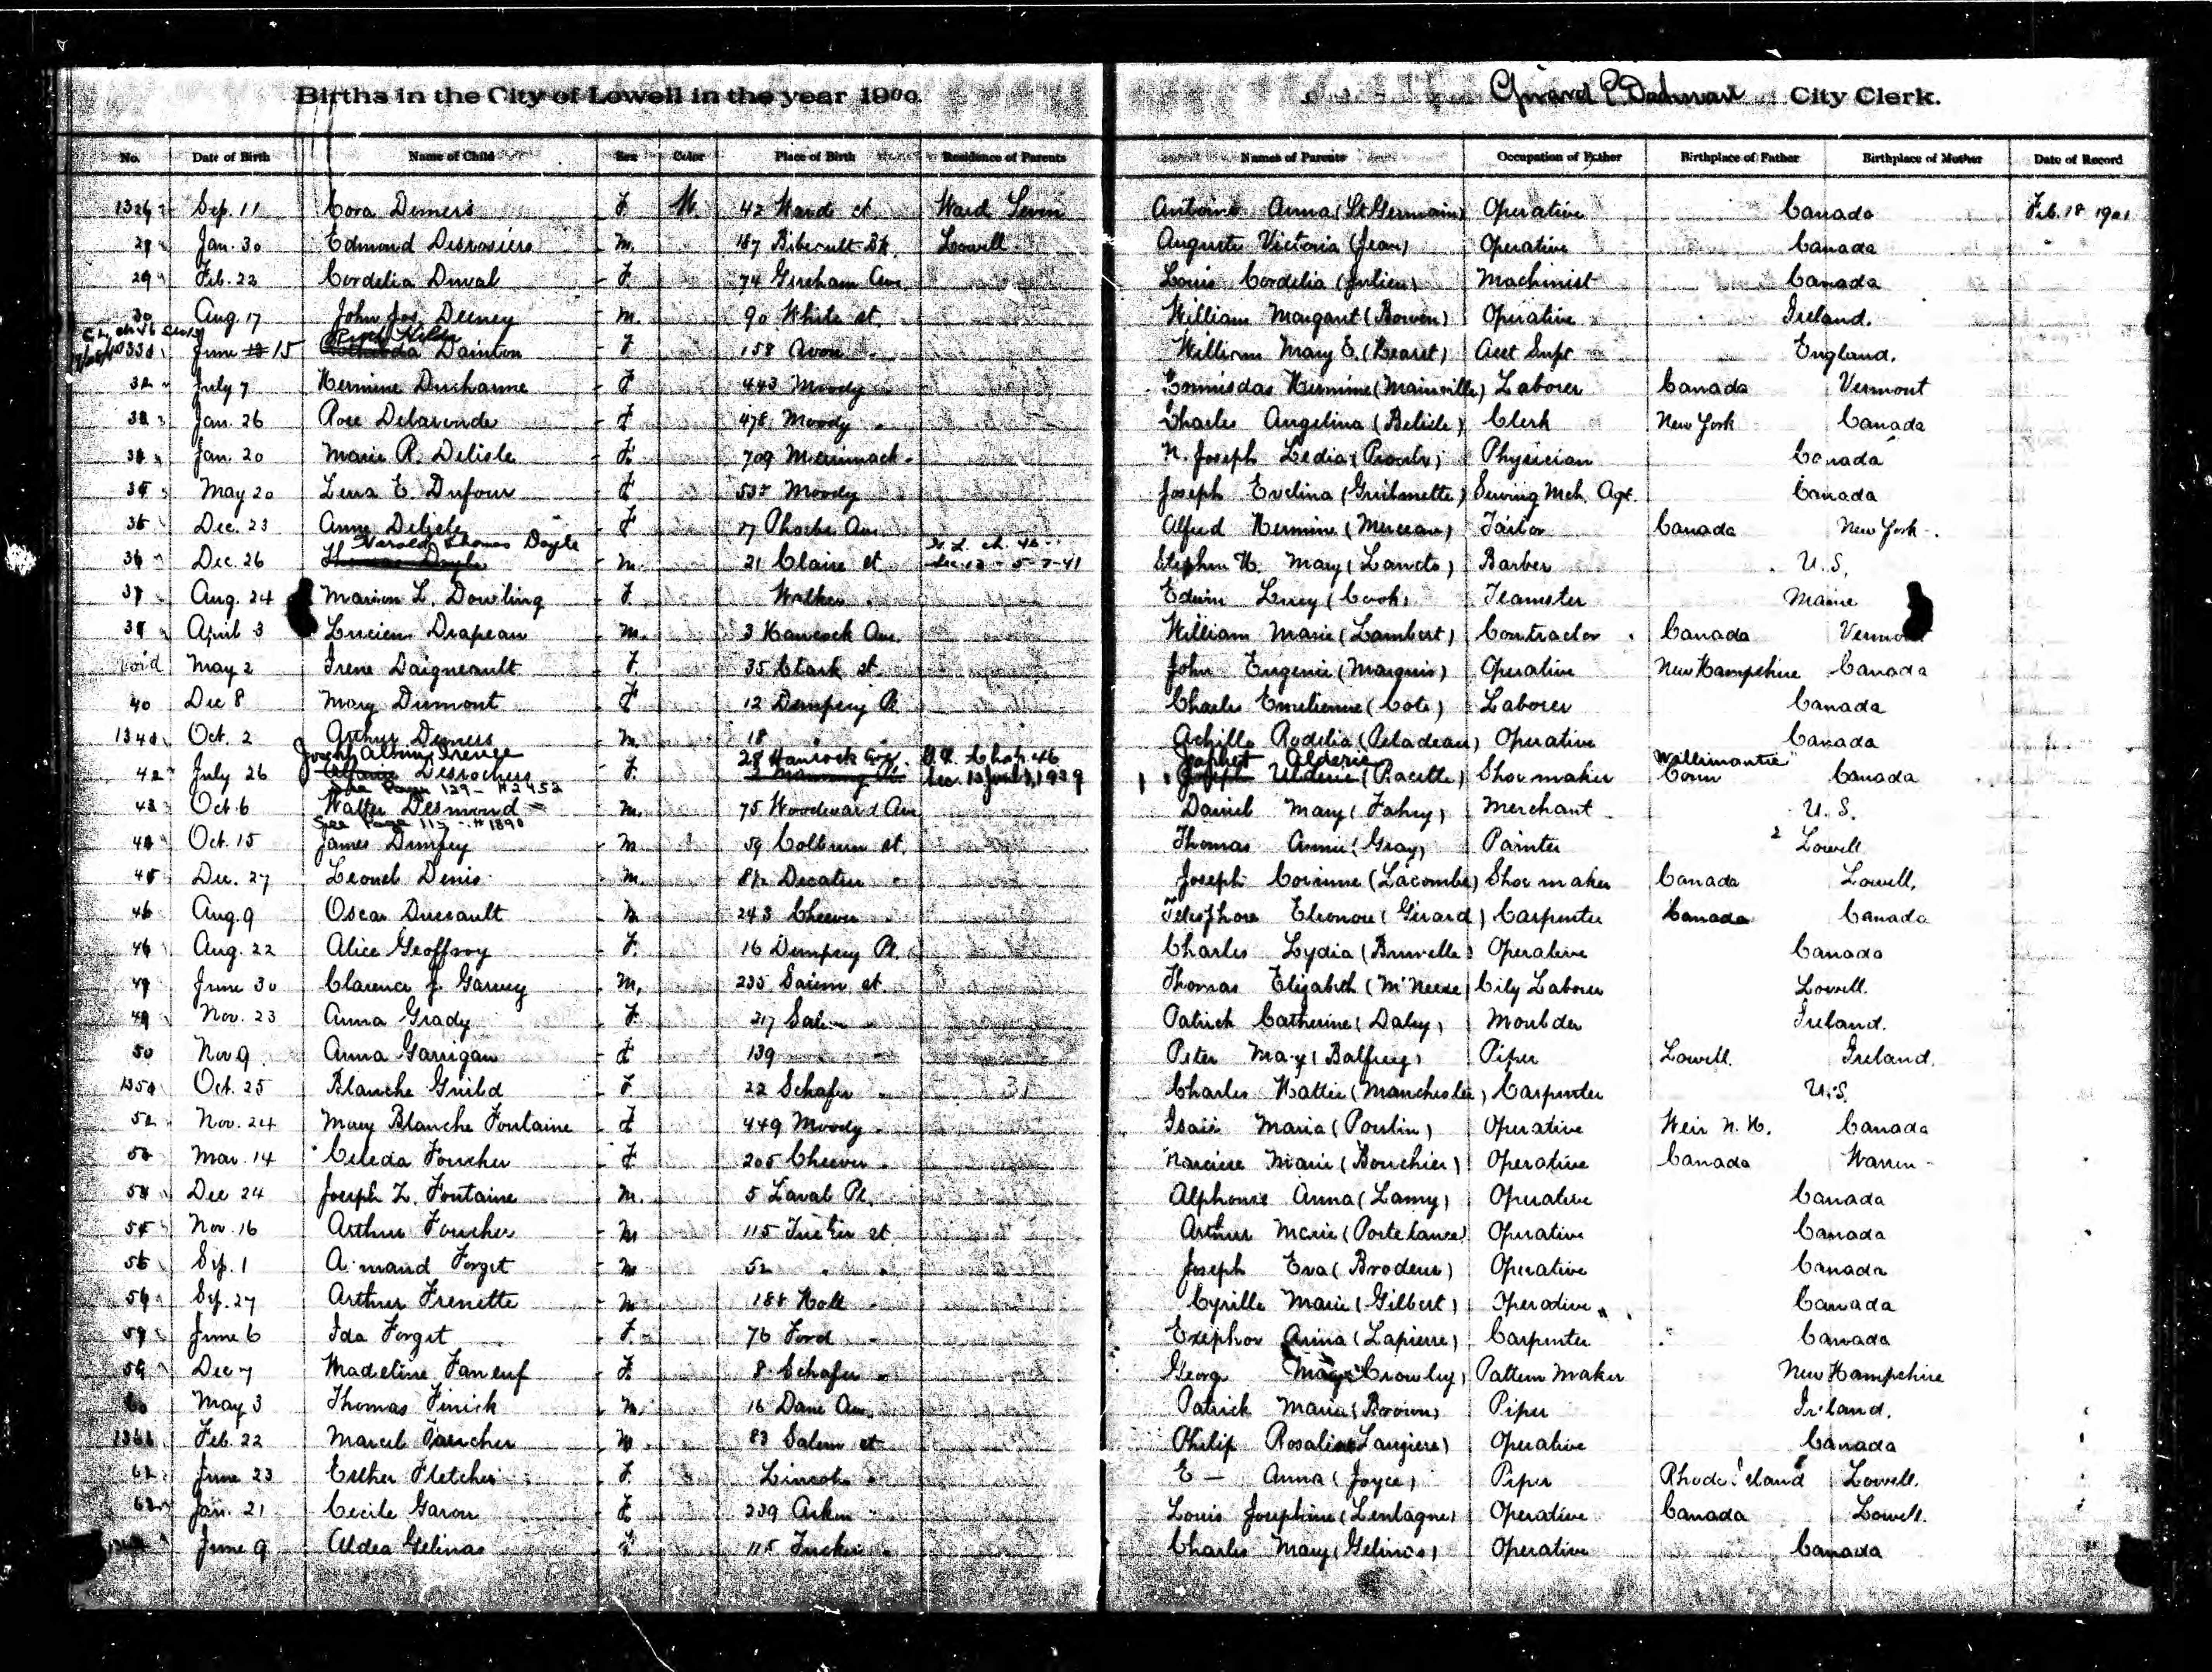 Births in the City of Lowell in the year 1900. City Clerk.
No. Date of Birth Name of Child Sex Color Place of Birth Residence of Parents Names of Parents Occupation of Father Birthplace of Father Birthplace of Mother Date of Record
Sep. 11 Cora Demers F. W. 42 Ward st. Ward Seven Antoine Anna (St Germain) Operative Canada Feb. 18 1901
Jan. 30 Edmond Desrosiers M. 187 Lowell Auguste Victoria (Jean) Operative Canada
29 Feb. 22 Cordelia Duval F 74 Gorham Ave. Louis Cordelia (Julien) Machinist Canada
30 Aug. 17 John Jos. Deeney M. 90 White st. William Margaret (Bowen) Operative Ireland.
June 13 15 Dainton F 158 Avon William Mary E. England.
32 July 7 Hermine Ducharme F 443 Moody Hermine (Mainville) Laborer Canada Vermont
Jan. 26 Rose F 478 Moody Charles Angelina (Belisle) Clerk New York Canada
Jan. 20 Marie R. Delisle F. 709 Merrimack N. Joseph Physician Canada
35 May 20 Lena E. Dufour F 535 Moody Joseph Evelina Sewing Mch. Agt. Canada
Dec. 23 Anna Delisle F 17 Phoebe Ave. Alfred Hermine Tailor Canada New York
Harold Thomas Doyle
36 Dec. 26 Thomas Doyle M. 21 Claire st 5-7-41 Stephen H. Mary Barber U.S.
37 Aug. 24 Marion L. Dowling F. Walker Edwin Lucy (Cook) Teamster Maine
38 April 3 Lucien Drapeau M. 3 Hancock Ave. William Marie (Lambert) Contractor Canada Vermont
void May 2 Irene Daigneault F. 35 Clark st. John Eugenie (Marquis) Operative New Hampshire Canada
40 Dec 8 Mary Dumont F 12 Dempsey Pl. Charles Emelienne (Cote) Laborer Canada
Oct. 2 Arthur Demers M. 18 Achille Rodelia (Peladeau) Operative Canada
Joseph Albini 28 Hancock Ave. Chap. 46 Japhet Alderic Willimantic
42 July 26 Desrochers F. Sec. 13 1939 Joseph (Racette) Shoe maker Conn Canada
See Page 129 - #2452
Oct. 6 Walter Desmond M. 75 Woodward Ave Daniel Mary (Fahey) Merchant U.S.
See Page 115 - #1890
Oct. 15 James Dempsey M 59 Colburn st. Thomas Annie (Gray) Painter 2 Lowell
45 Dec. 27 Leonel Denis M. Decatur Joseph Corinne (Lacombe) Shoe maker Canada Lowell.
46 Aug. 9 Oscar M 243 Cheever Telesphore Eleonore (Girard) Carpenter Canada Canada
46 Aug. 22 Alice Geoffroy F. 16 Dempsey Pl. Charles Lydia Operative Canada
June 30 Clarence J. Garvey M. 235 Salem st. Thomas Elizabeth City Laborer Lowell.
49 Nov. 23 Anna Grady F. 217 Salem Patrick Catherine (Daley) Moulder Ireland.
50 Nov 9 Anna Garrigan F 139 Peter Mary Piper Lowell. Ireland.
Oct. 25 Blanche Guild F. 22 Schafer Charles Hattie (Manchester) Carpenter U.S.
52 Nov. 24 Mary Blanche Fontaine F 449 Moody Isaie Maria (Poulin) Operative Weir N. H. Canada
Mar. 14 Foucher F. 205 Cheever Narcisse Marie (Bouchier) Operative Canada Warren
Dec 24 Joseph L. Fontaine M. 5 Laval Pl. Alphonse Anna (Lamy) Operative Canada
55 Nov. 16 Arthur Foucher M 115 Tucker st. Arthur Marie (Portelance) Operative Canada
56 Sep. 1 Armand Forget M 52 Joseph Eva (Brodeur) Operative Canada
Sep. 27 Arthur Frenette M 188 Hall Cyrille Marie (Gilbert) Operative Canada
June 6 Ida Forget F. 76 Ford Anna (Lapierre) Carpenter Canada
Dec 7 Madeline Faneuf F. 8 Schafer George Mary (Crowley) Pattern Maker New Hampshire
May 3 Thomas Finick M. 16 Dane Ave. Patrick Maria (Brown) Piper Ireland.
Feb. 22 Marcel M 83 Salem st Philip Operative Canada
62 June 23 Esther Fletcher F. Lincoln E — Anna (Joyce) Piper Rhode Island Lowell.
Jan. 21 Cecile Garon F. 239 Aiken Louis Josephine Operative Canada Lowell.
June 9 Aldea Gelinas F 115 Tucker Charles Mary (Gelinas) Operative Canada